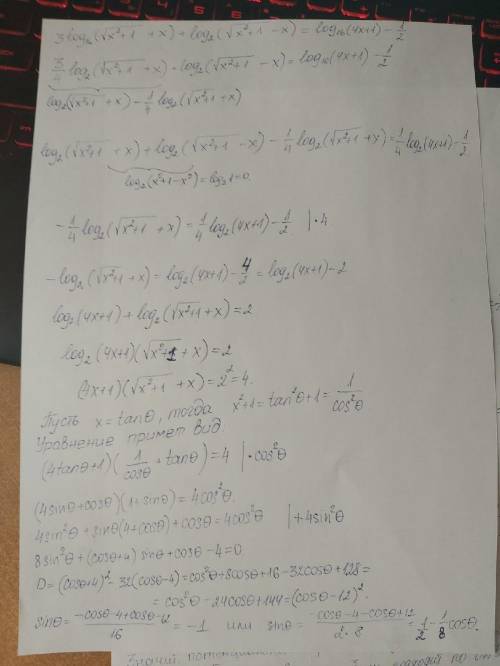 3log₁₆(√(x²+1) + x) + log₂(√(x²+1) − x) = log₁₆(4x+1) − 1/2
3/4 log₂(√(x²+1) + x) + log₂(√(x²+1) − x) = log₁₆(4x+1) − 1/2
log₂(√(x²+1) + x) − 1/4 log₂(√(x²+1) + x)
log₂(√(x²+1) + x) + log₂(√(x²+1) − x) − 1/4 log₂(√(x²+1) + x) = 1/4 log₂(4x+1) − 1/2
log₂(x²+1−x²) = log₂1 = 0
−1/4 log₂(√(x²+1) + x) = 1/4 log₂(4x+1) − 1/2 | ·4
−log₂(√(x²+1) + x) = log₂(4x+1) − 4/2 = log₂(4x+1) − 2
log₂(4x+1) + log₂(√(x²+1) + x) = 2
log₂(4x+1)(√(x²+1) + x) = 2
(4x+1)(√(x²+1) + x) = 2² = 4.
Пусть x = tanθ, тогда x²+1 = tan²θ+1 = 1/cos²θ
Уравнение примет вид
(4tanθ+1)(1/cosθ + tanθ) = 4 | ·cos²θ
(4sinθ+cosθ)(1+sinθ) = 4cos²θ.
4sin²θ + sinθ(4+cosθ) + cosθ = 4cos²θ | +4sin²θ
8sin²θ + (cosθ+4) sinθ + cosθ − 4 = 0
D = (cosθ+4)² − 32(cosθ−4) = cos²θ + 8cosθ + 16 − 32cosθ + 128 =
= cos²θ − 24cosθ + 144 = (cosθ−12)².
sinθ = (−cosθ−4+cosθ−12)/16 = −1 или sinθ = (−cosθ−4−cosθ+12)/(2·8) = 1/2 − 1/8 cosθ.